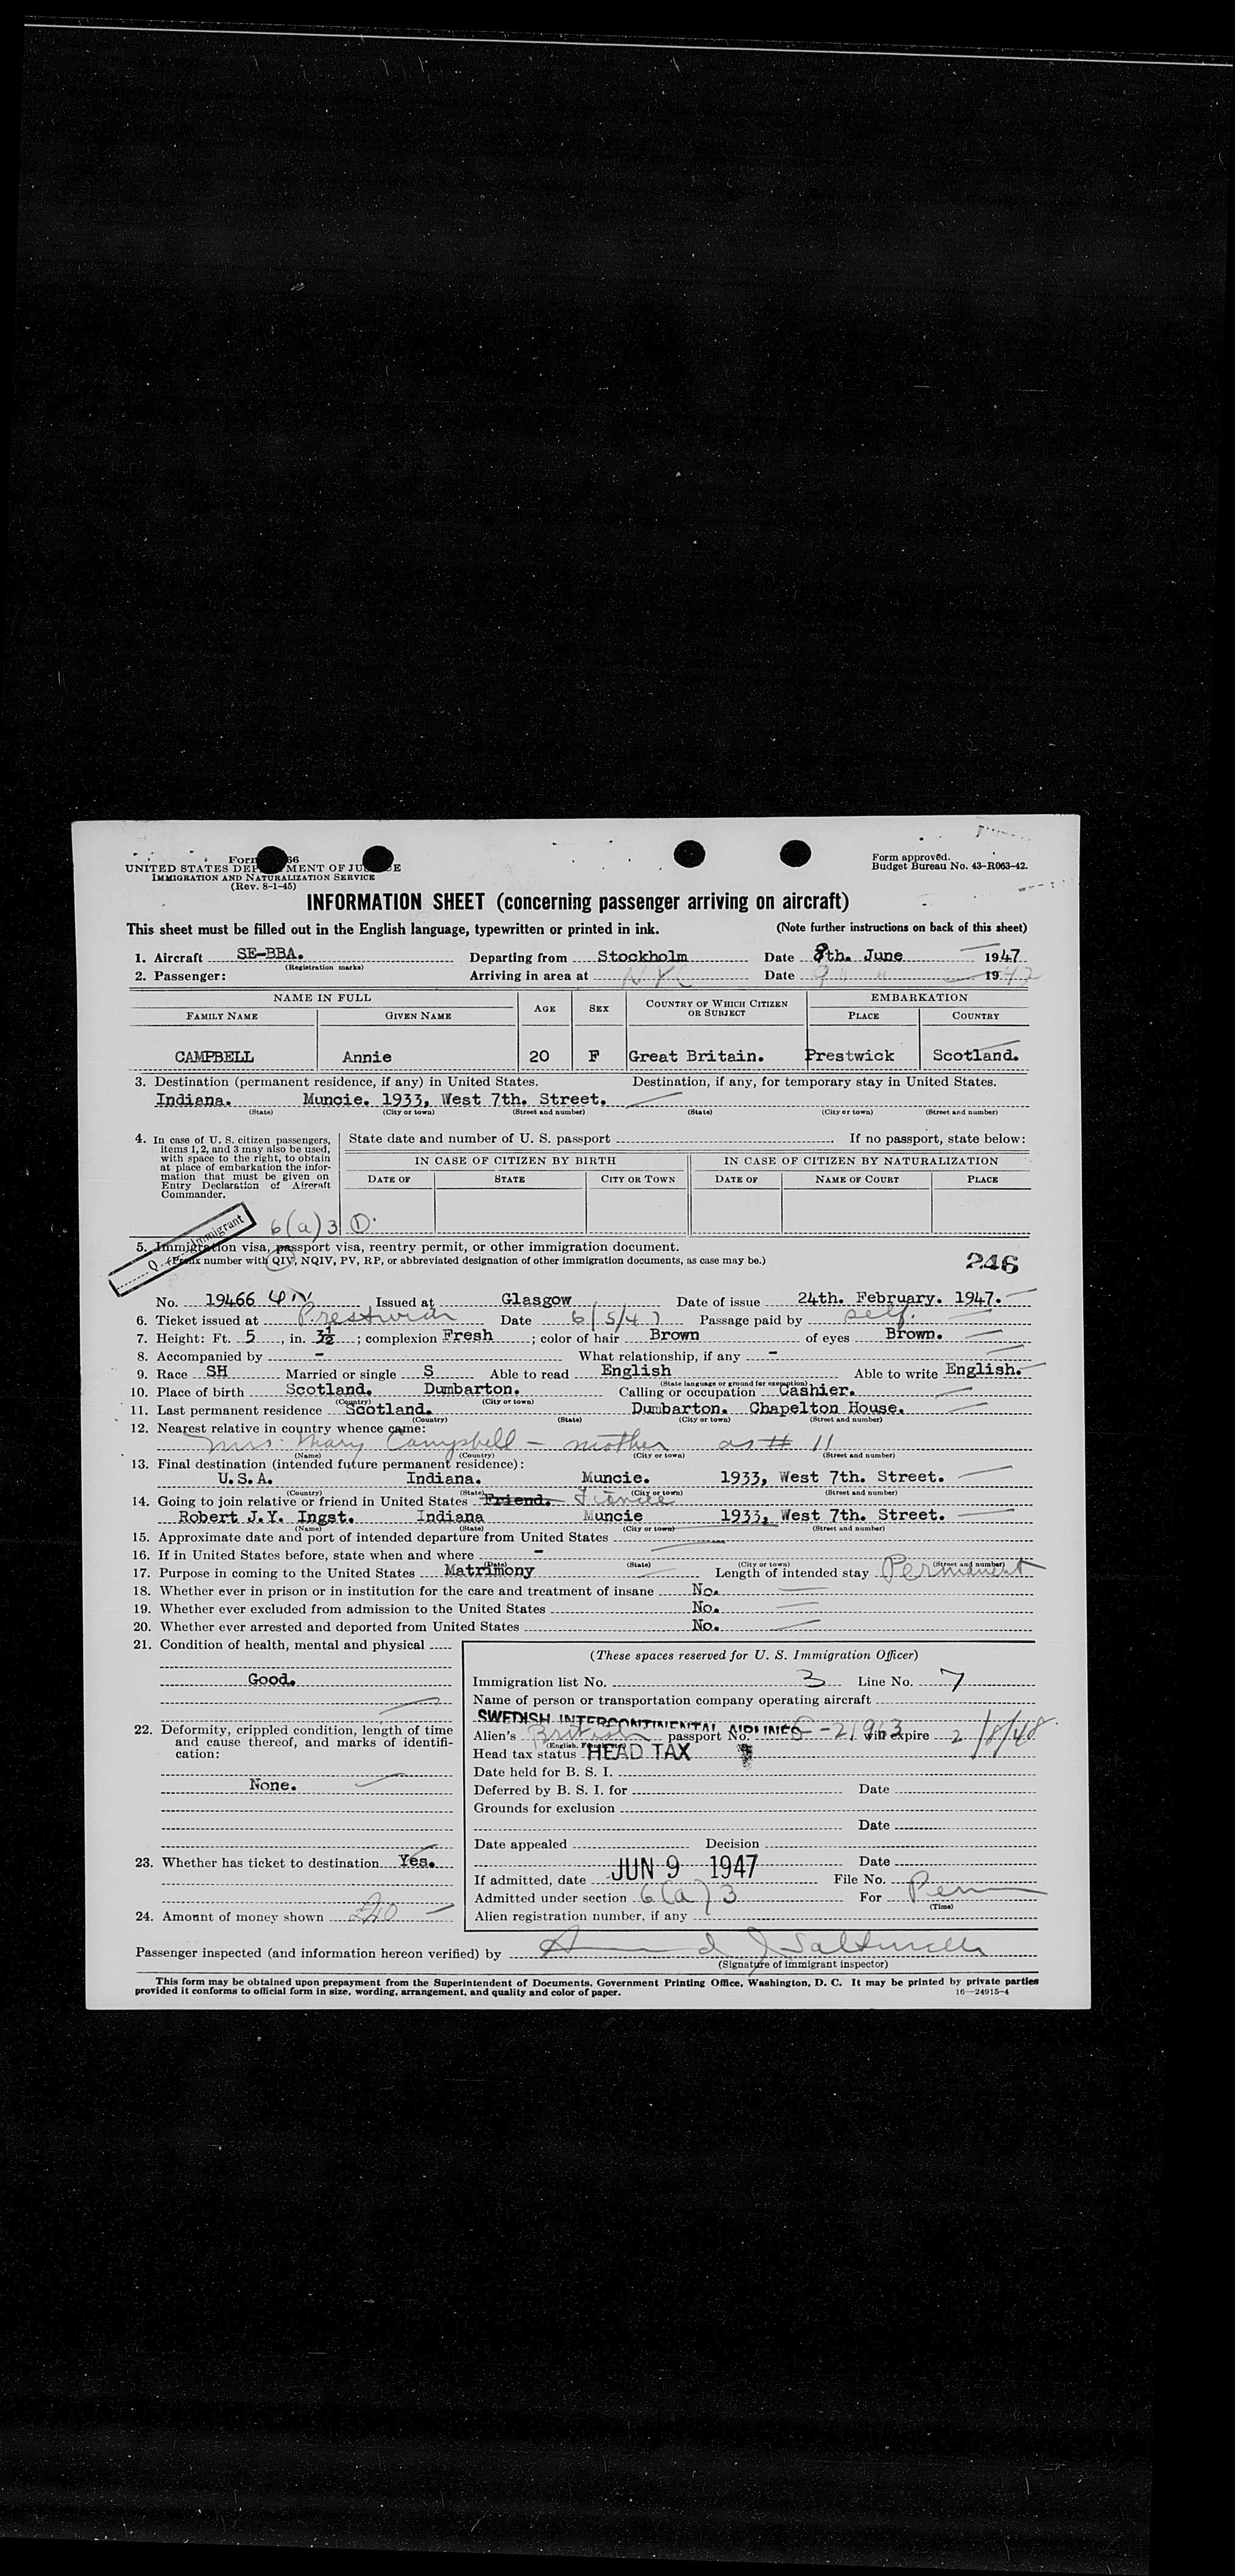 Form 66
UNITED STATES DEPARTMENT OF JUSTICE
IMMIGRATION AND NATURALIZATION SERVICE
(Rev. 8-1-45)
Form approved.
Budget Bureau No. 43-R063-42.
INFORMATION SHEET (concerning passenger arriving on aircraft)
This sheet must be filled out in the English language, typewritten or printed in ink. (Note further instructions on back of this sheet)
1. Aircraft SE-BBA. Departing from Stockholm Date 8th. June 1947
(Registration marks)
2. Passenger: Arriving in area at N Y Date 9 " " 1947
NAME IN FULL AGE SEX COUNTRY OF WHICH CITIZEN OR SUBJECT EMBARKATION
FAMILY NAME GIVEN NAME PLACE COUNTRY
CAMPBELL Annie 20 F Great Britain. Prestwick Scotland.
3. Destination (permanent residence, if any) in United States. Destination, if any, for temporary stay in United States.
Indiana. Muncie. 1933, West 7th. Street.
(State) (City or town) (Street and number) (State) (City or town) (Street and number)
4. In case of U. S. citizen passengers, items 1, 2, and 3 may also be used, with space to the right, to obtain at place of embarkation the information that must be given on Entry Declaration of Aircraft Commander.
State date and number of U. S. passport If no passport, state below:
IN CASE OF CITIZEN BY BIRTH IN CASE OF CITIZEN BY NATURALIZATION
DATE OF STATE CITY OR TOWN DATE OF NAME OF COURT PLACE
Q Immigrant 6(a)3 1
5. Immigration visa, passport visa, reentry permit, or other immigration document.
(Prefix number with QIV, NQIV, PV, RP, or abbreviated designation of other immigration documents, as case may be.)
246
No. 19466 QIV Issued at Glasgow Date of issue 24th. February. 1947.
6. Ticket issued at Prestwick Date 6/5/47 Passage paid by self.
7. Height: Ft. 5, in. 3½; complexion Fresh; color of hair Brown of eyes Brown.
8. Accompanied by - What relationship, if any -
9. Race SH Married or single S Able to read English Able to write English.
(State language or ground for exemption)
10. Place of birth Scotland. Dumbarton. Calling or occupation Cashier.
(Country) (City or town)
11. Last permanent residence Scotland. Dumbarton. Chapelton House.
(Country) (State) (City or town) (Street and number)
12. Nearest relative in country whence came:
Mrs. Mary Campbell - mother as # 11
(Name) (Country) (City or town) (Street and number)
13. Final destination (intended future permanent residence):
U.S.A. Indiana. Muncie. 1933, West 7th. Street.
(Country) (State) (City or town) (Street and number)
14. Going to join relative or friend in United States Friend. Fiancee
Robert J.Y. Ingst. Indiana Muncie 1933, West 7th. Street.
(Name) (State) (City or town) (Street and number)
15. Approximate date and port of intended departure from United States
16. If in United States before, state when and where -
(Date) (State) (City or town) (Street and number)
17. Purpose in coming to the United States Matrimony Length of intended stay Permanent
18. Whether ever in prison or in institution for the care and treatment of insane No.
19. Whether ever excluded from admission to the United States No.
20. Whether ever arrested and deported from United States No.
21. Condition of health, mental and physical
Good.
22. Deformity, crippled condition, length of time and cause thereof, and marks of identification:
None.
23. Whether has ticket to destination Yes.
24. Amount of money shown
(These spaces reserved for U. S. Immigration Officer)
Immigration list No. 3 Line No. 7
Name of person or transportation company operating aircraft
SWEDISH INTERCONTINENTAL AIRLINES
Alien's British passport No. C-21963 will expire 2/8/48.
Head tax status HEAD TAX
Date held for B. S. I.
Deferred by B. S. I. for Date
Grounds for exclusion
Date
Date appealed Decision
Date
If admitted, date JUN 9 1947 File No.
Admitted under section 6(a)3 For Perm
(Time)
Alien registration number, if any
Passenger inspected (and information hereon verified) by
(Signature of immigrant inspector)
This form may be obtained upon prepayment from the Superintendent of Documents, Government Printing Office, Washington, D. C. It may be printed by private parties
provided it conforms to official form in size, wording, arrangement, and quality and color of paper. 16—24915-4